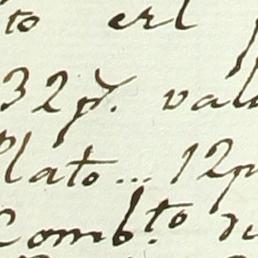 to erl
32 p/. val
Plato... 12p
Comb.to de